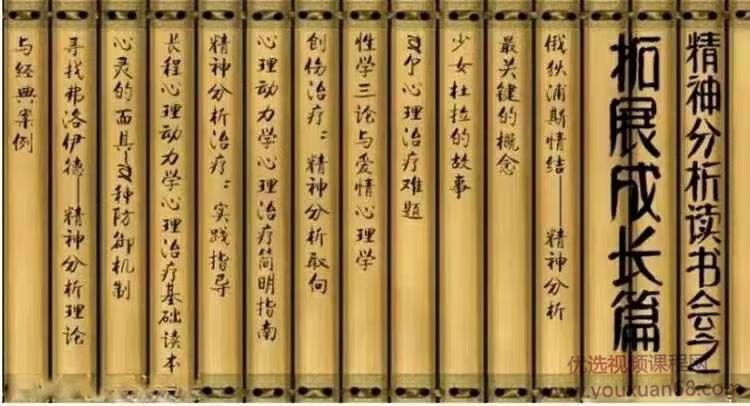 精神分析读书会之
拓展成长篇
俄狄浦斯情结——精神分析
最关键的概念
少女杜拉的故事
个心理治疗难题
性学三论与爱情心理学
创伤治疗：精神分析取向
心理动力学心理治疗简明指南
精神分析治疗：实践指导
长程心理动力学心理治疗基础读本
心灵的面具—种防御机制
寻找弗洛伊德——精神分析理论
与经典案例
优选视频课程网
www.youxuan68.com